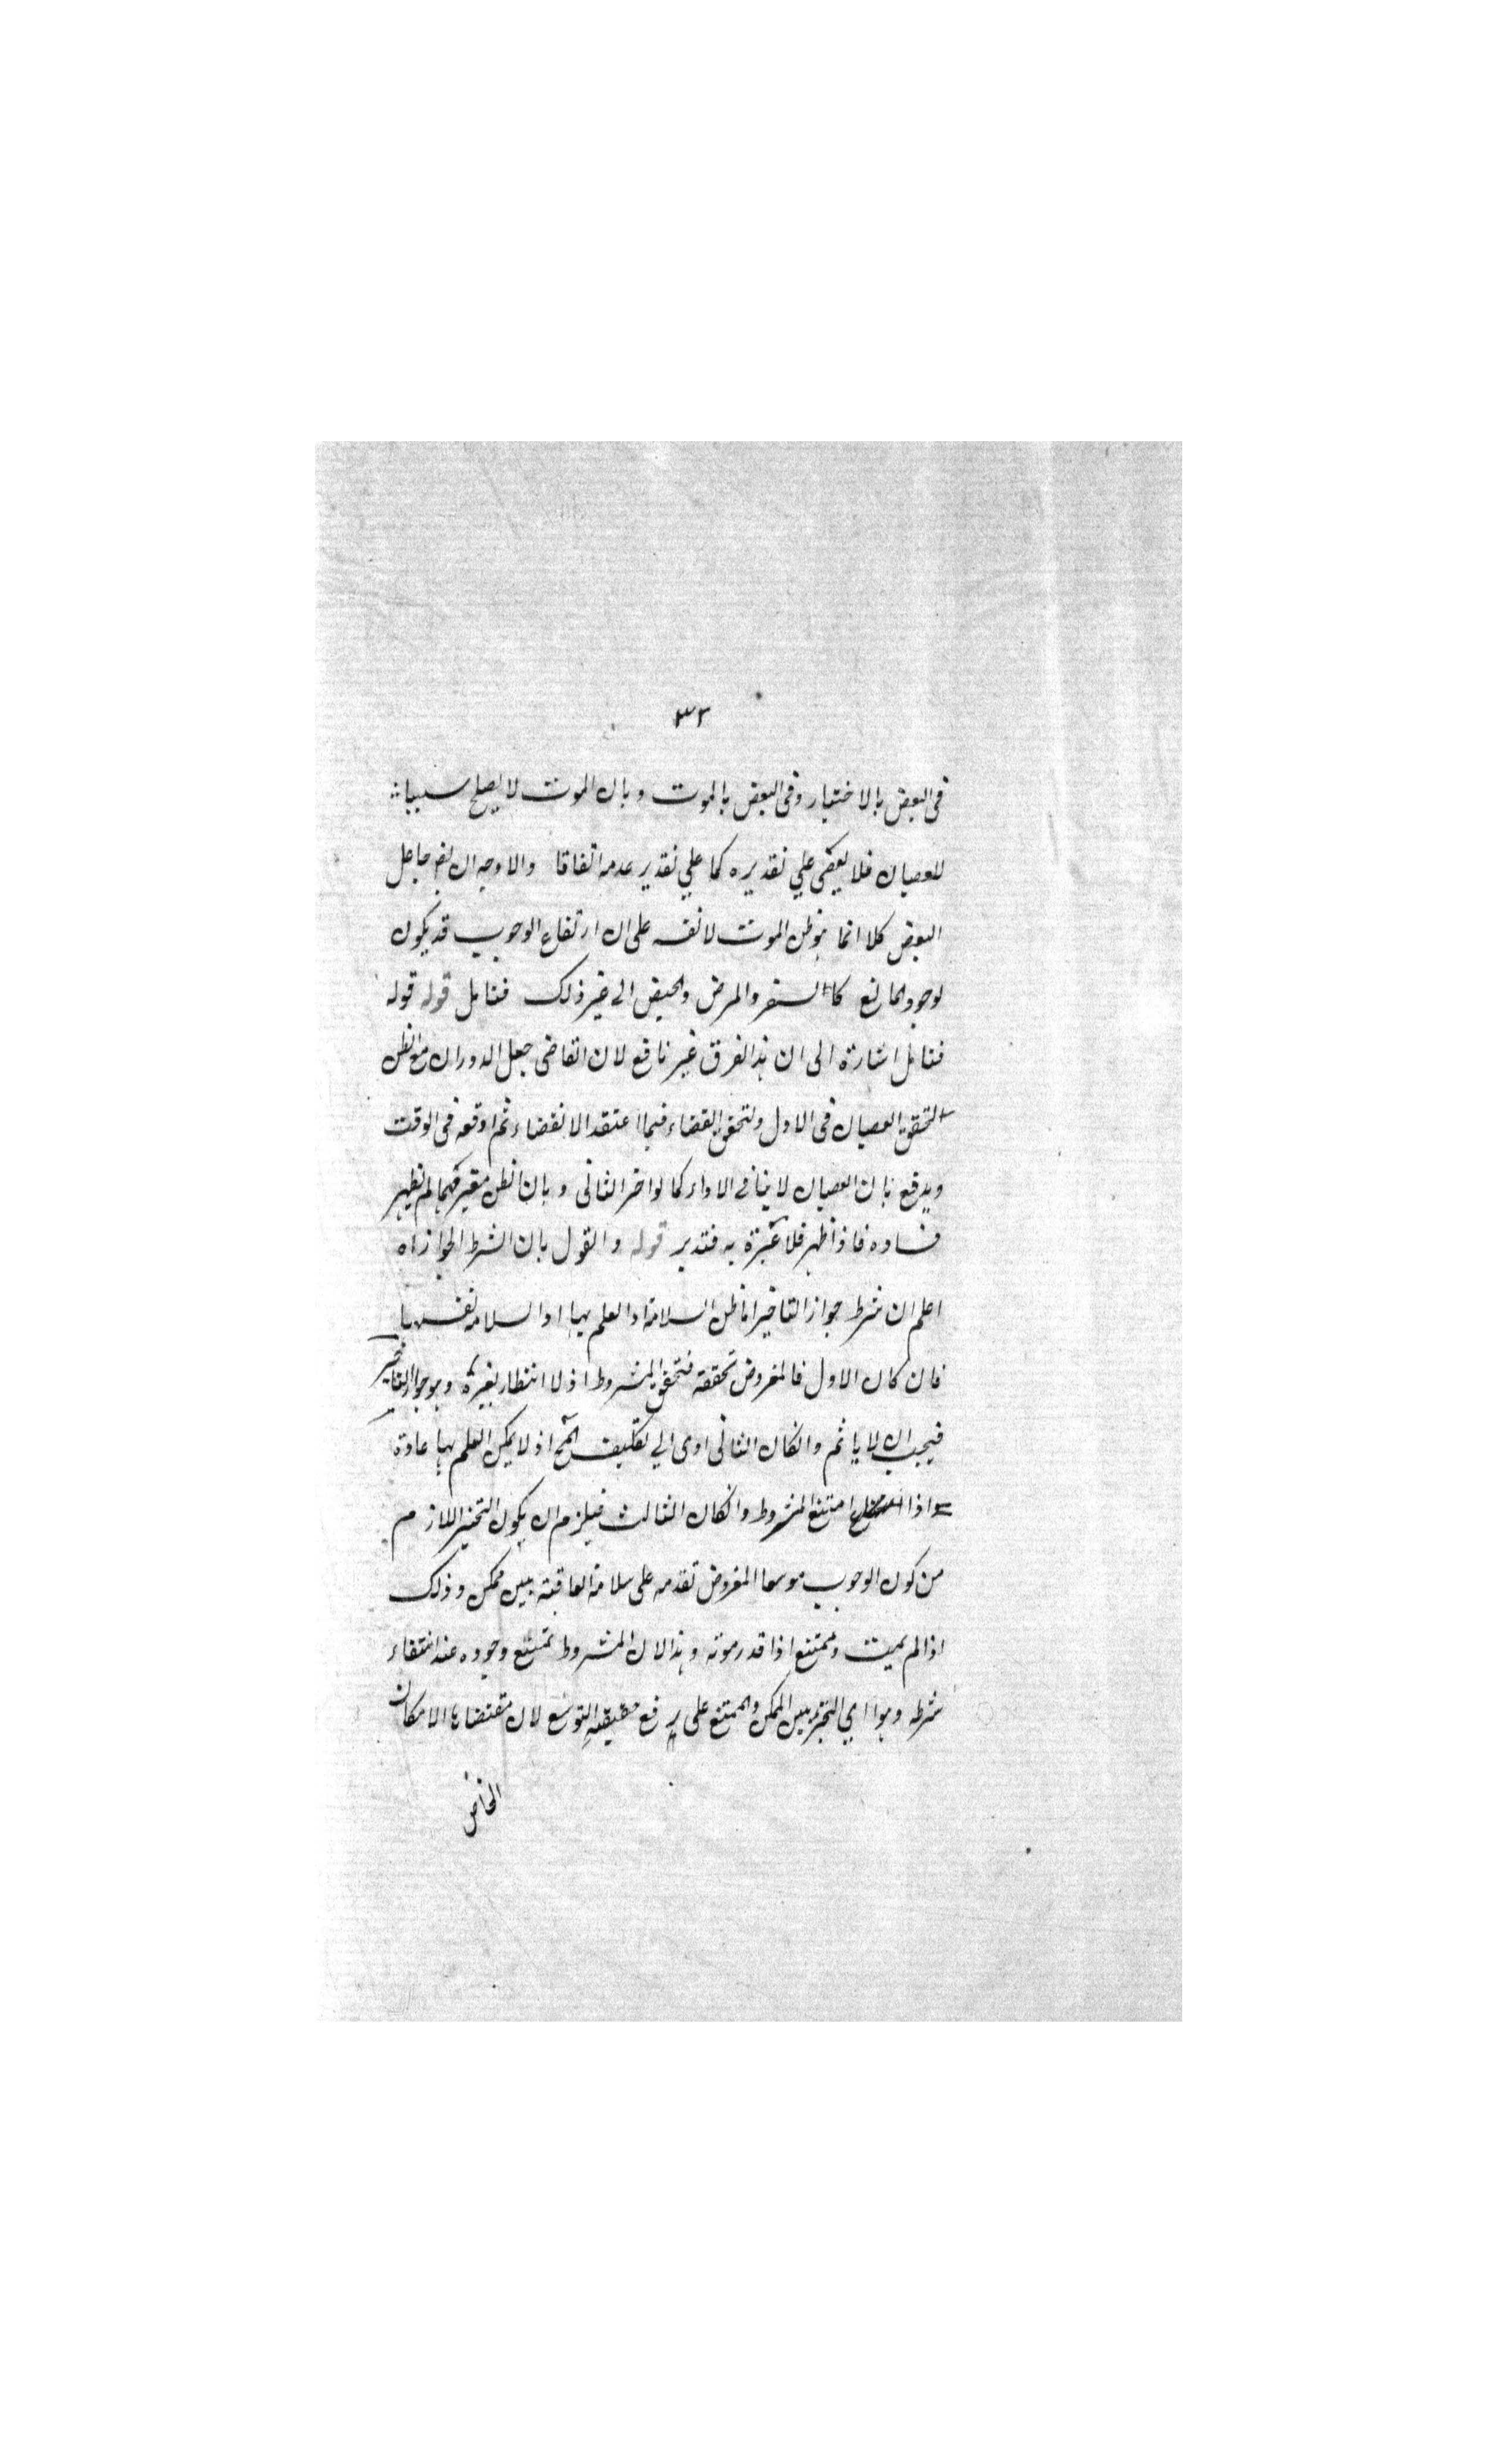 ٣٢
فى البعض بالاختيار وفى البعض بالموت وبان الموت لا يصلح سببا
للعصيان فلا يعصى على تقديره كما علي تقدير عدمه اتفاقا والاوجه ان
البعض كلا انما الموت لا نفسه على ان ارتفاع الوجوب قد يكون
لوجود المانع كالسفر والمرض والحيض الى غير ذلك فتامل قوله قوله
فتامل اشارة الى ان هذا الفرق غير نافع لان القاضى جعل الدوران مع الظن
لتحقق العصيان فى الاول ولتحقق القضاء فيما اعتقد الانقضاء ثم اوقعه فى الوقت
ويدفع بان العصيان لا ينافى الاداء كما لو اخر الثانى وبان الظن معتبر فيما لم يظهر
فساده فاذا ظهر فلا عبرة به فتدبر قوله والقول بان الشرط الجواز اه
اعلم ان شرط جواز التاخير اما ظن السلامة او العلم بها او السلامة نفسها
فان كان الاول فالمفروض تحققه فتحقق المشروط اذ لا انتظار بغيره وهو جواز التاخير
فيجب ان لا ياثم وانكان الثانى ادى الي تكليف المح اذ لا يمكن العلم بها عادة
واذا امتنع المشروط وانكان الثالث فيلزم ان يكون التخيير اللازم
من كون الوجوب موسعا المفروض تقدمه على سلامة العاقبة بين ممكن وذلك
اذا لم يميت وممتنع اذا قدر موته وهذا لان المشروط يمتنع وجوده عند انتفاء
شرطه وهو اي التخيير بين الممكن والممتنع على رفع حقيقة التوسع لان مقتضاها الامكان
الخاص